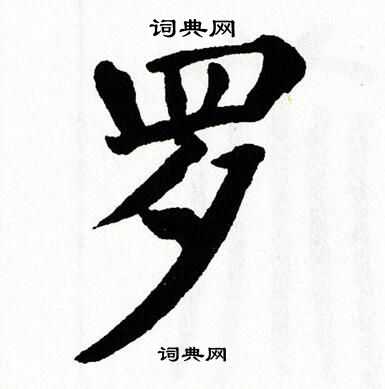 词典网
罗
词典网